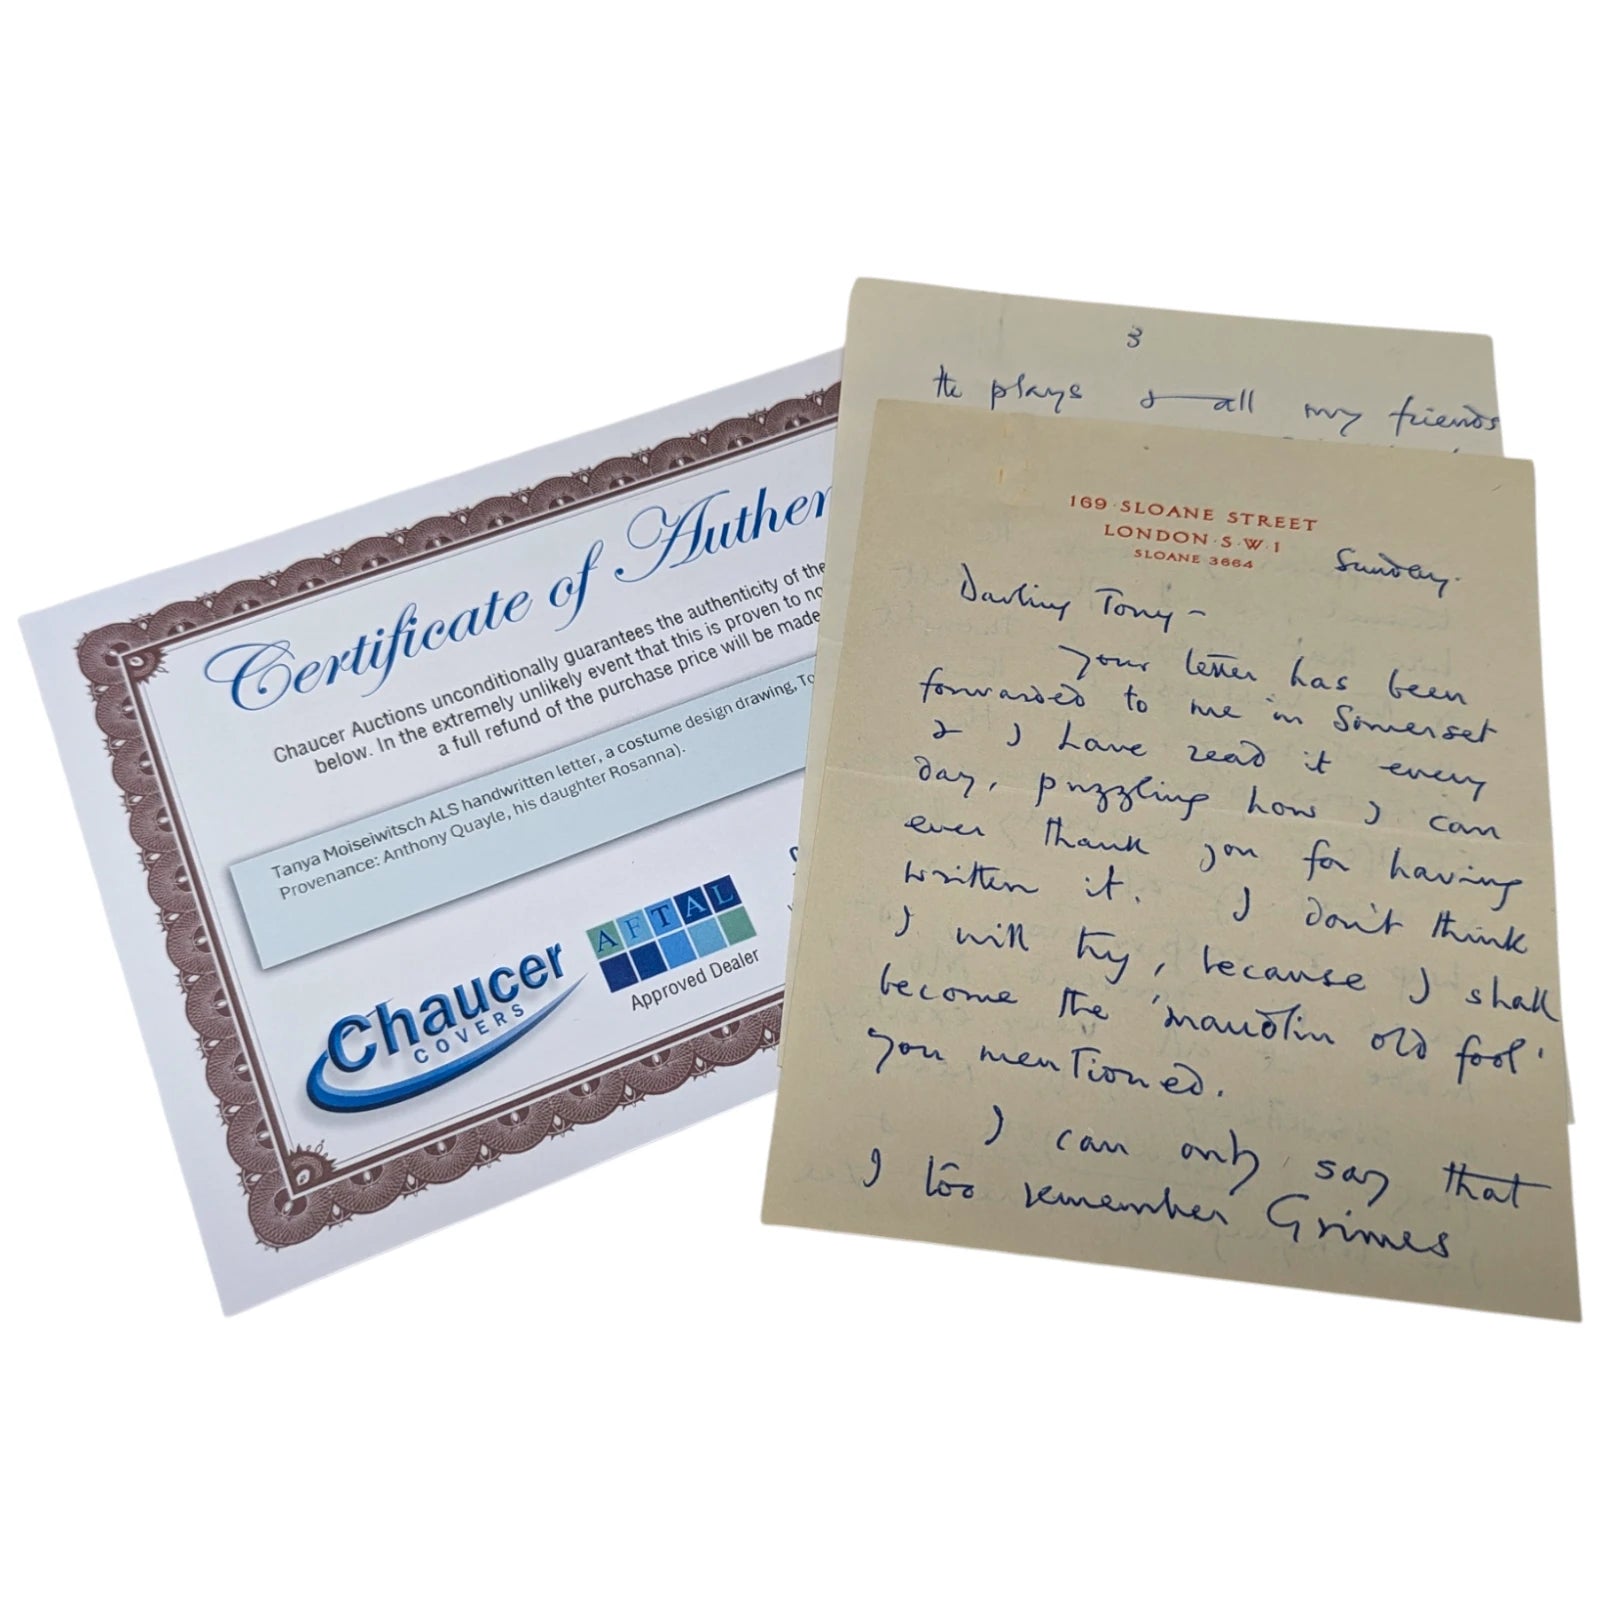 Certificate of Authen
Chaucer Auctions unconditionally guarantees the authenticity of the
below. In the extremely unlikely event that this is proven to no
a full refund of the purchase price will be made
Tanya Moiseiwitsch ALS handwritten letter, a costume design drawing, To
Provenance: Anthony Quayle, his daughter Rosanna).
Chaucer
COVERS
AFTAL
Approved Dealer
3
the plays & all my friends
169 · SLOANE STREET
LONDON · S · W · 1
SLOANE 3664
Sunday.
Darling Tony –
Your letter has been
forwarded to me in Somerset
& I have read it every
day, puzzling how I can
ever thank you for having
written it. I don't think
I will try, because I shall
become the 'maudlin old fool'
you mentioned.
I can only say that
I too remember Grimes